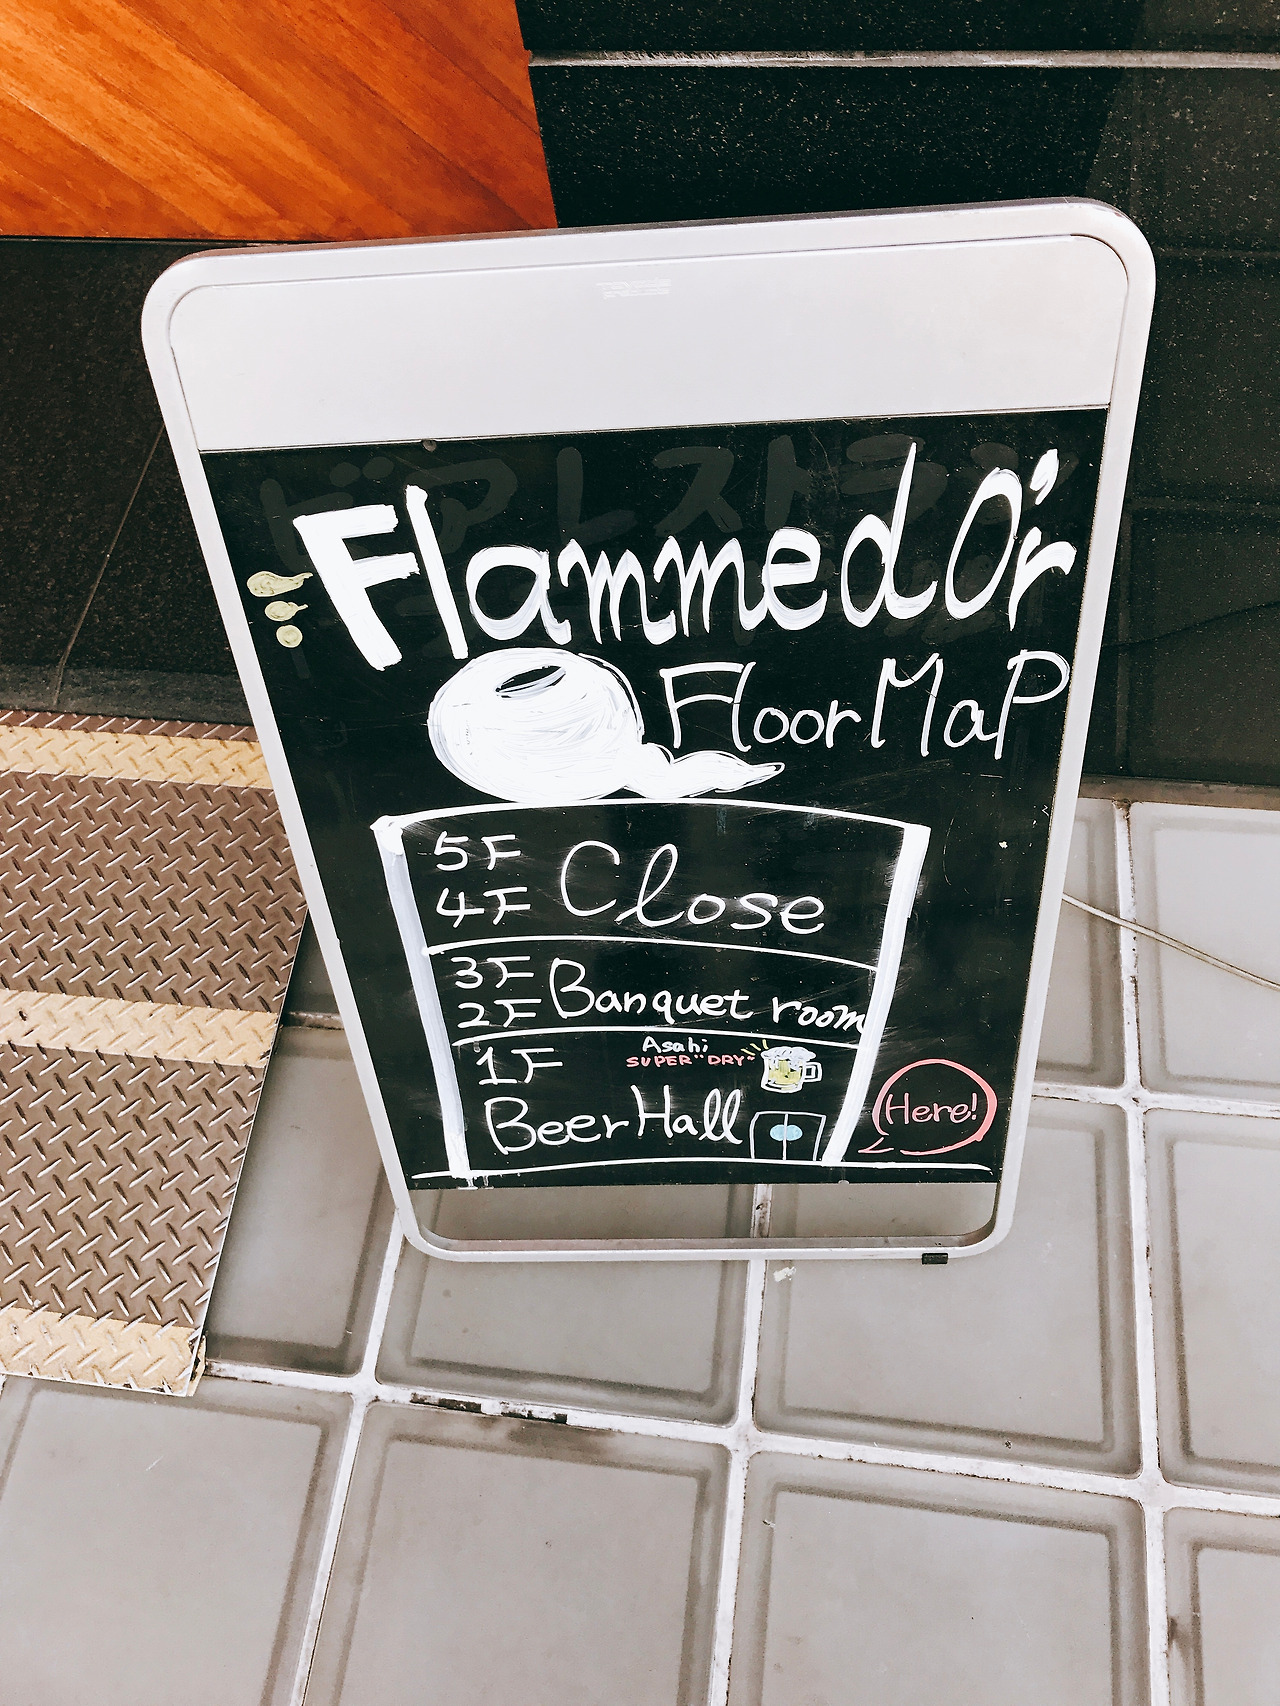 Flammed Or
Floor Map
5F
4F
Close
3F
2F
Banquet room
1F
Asahi
SUPER "DRY"
Beer Hall
Here!
ビアレストラン